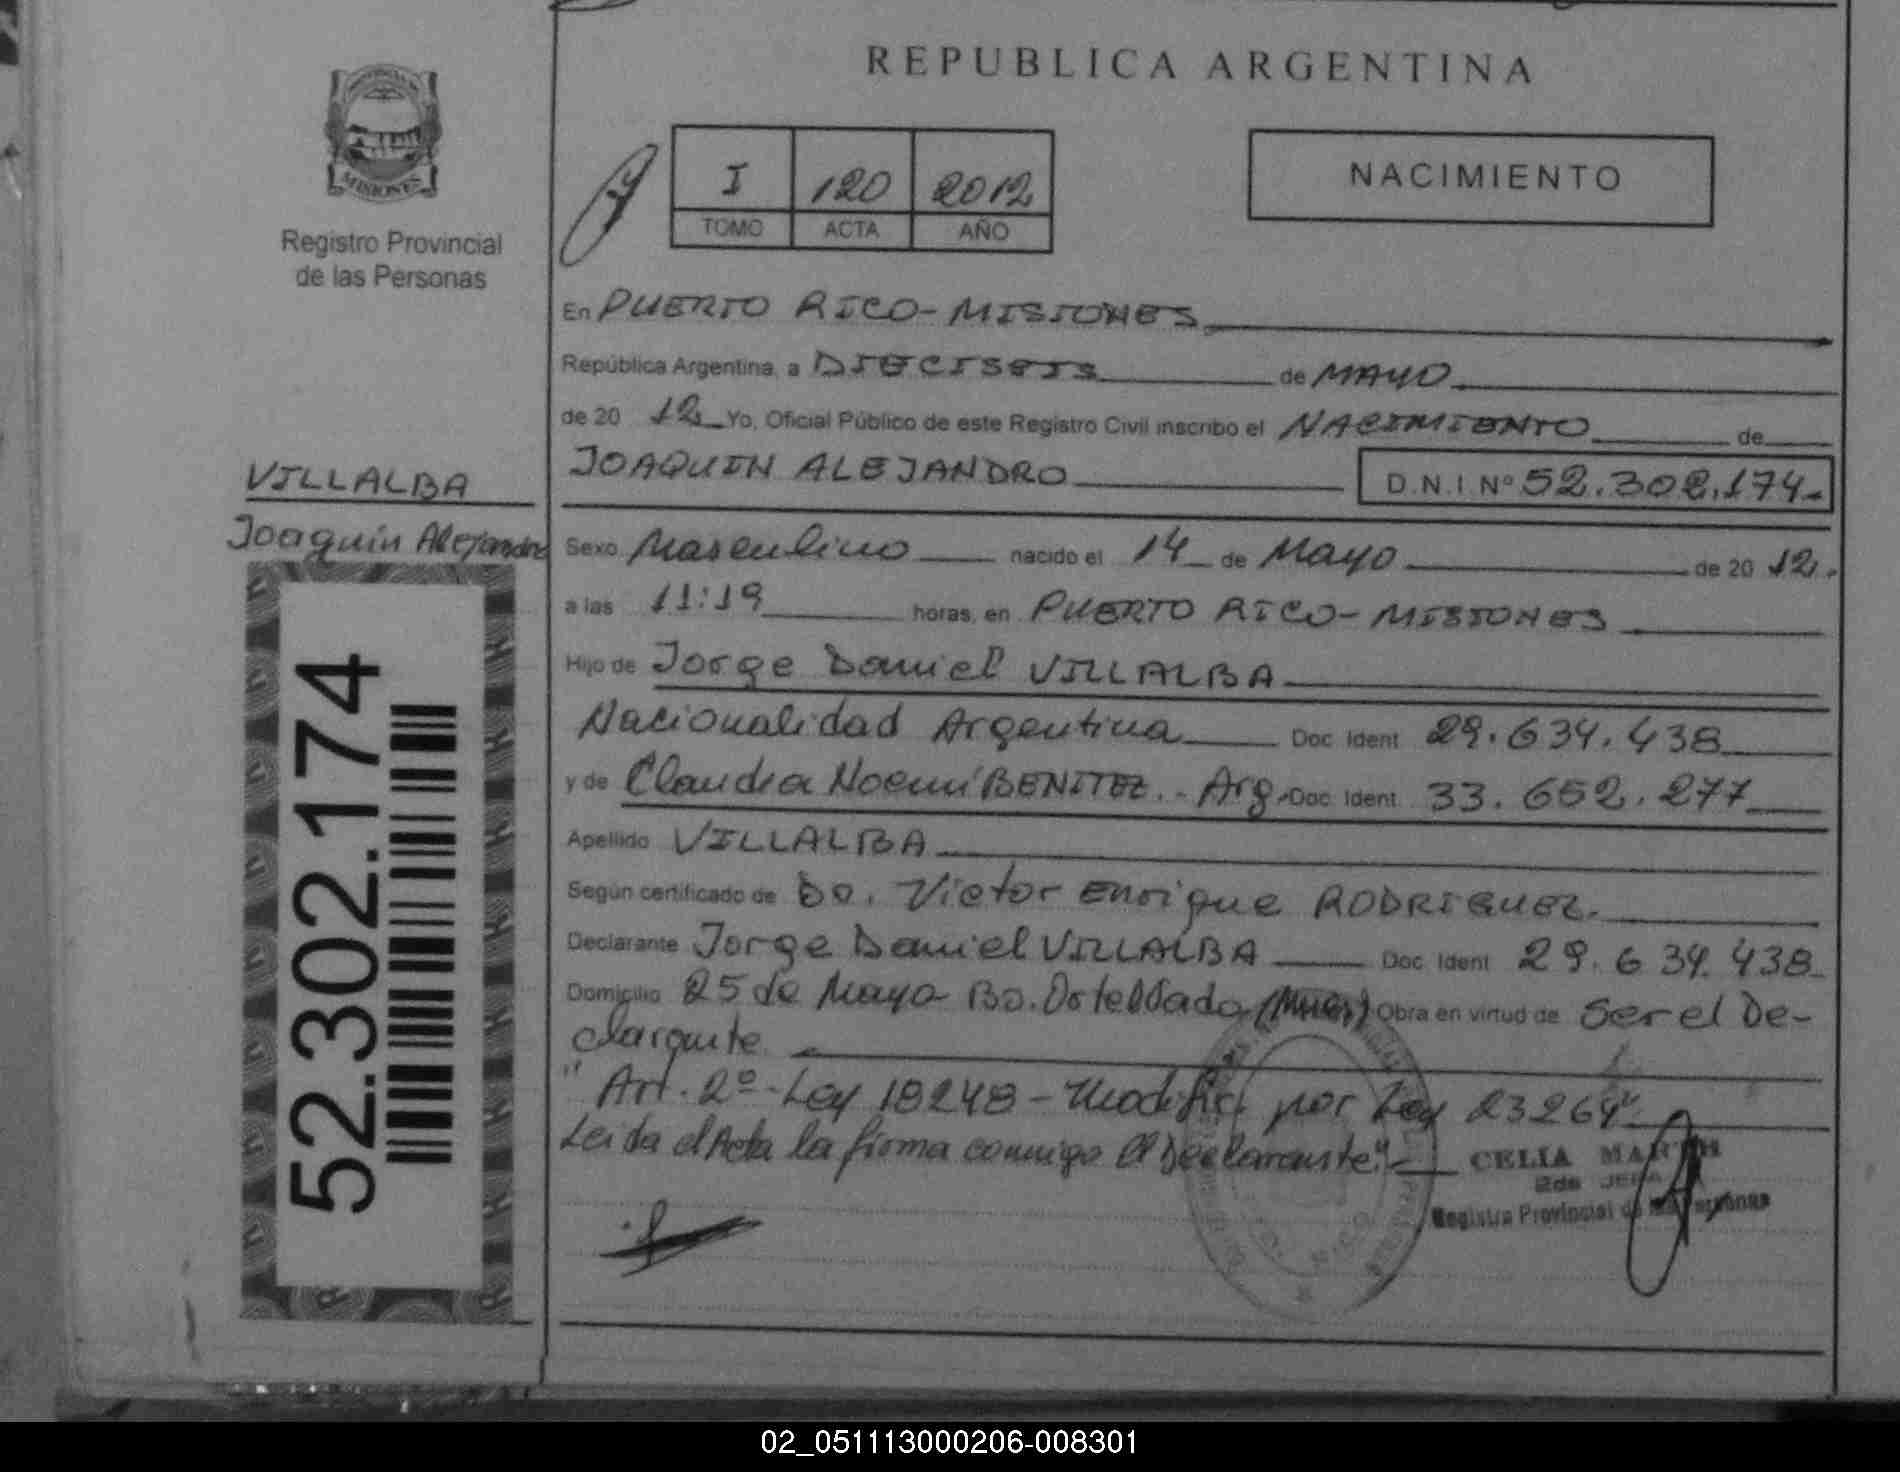 REPUBLICA ARGENTINA
MISIONES
Registro Provincial
de las Personas
I 120 2012
TOMO ACTA AÑO
NACIMIENTO
En PUERTO RICO-MISIONES
República Argentina, a DIECISEIS de MAYO
de 20 12 Yo, Oficial Público de este Registro Civil inscribo el NACIMIENTO de
JOAQUIN ALEJANDRO D.N.I. Nº 52.302.174.-
VILLALBA
Joaquín Alejandro
Sexo Masculino nacido el 14 de Mayo de 20 12.
a las 11:19 horas, en PUERTO RICO-MISIONES
Hijo de Jorge Daniel VILLALBA
Nacionalidad Argentina Doc. Ident. 29.634.438
y de Claudia Noemí BENITEZ.- Arg. Doc. Ident. 33.652.277
Apellido VILLALBA
Según certificado de Do. Victor Enrique RODRIGUEZ.
Declarante Jorge Daniel VILLALBA Doc. Ident. 29.634.438
Domicilio 25 de Mayo Bo. Obra en virtud de Ser el De-
clarante.
"Art. 2º-Ley 18248-Modific. por Ley 23264"
Leida el Acta la firma conmigo el Declarante".-
CELIA
2da JEFA
Registro Provincial de las Personas
52.302.174
02_051113000206-008301